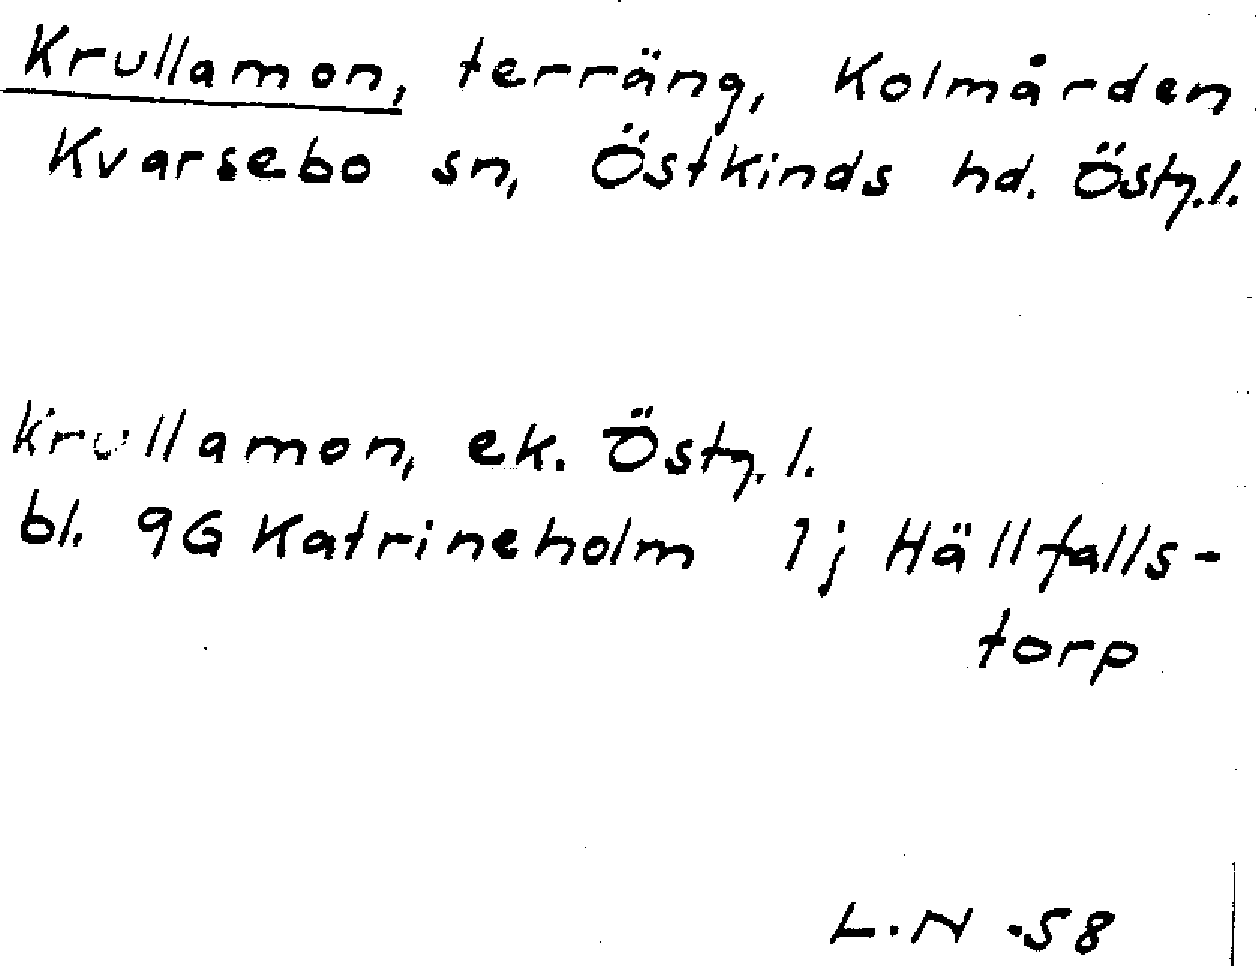 Krullamon, terräng, Kolmården
Kvarsebo sn, Östkinds hd. Östg.l.
Krullamon, ek. Östg.l.
bl. 9G Katrineholm 1j Hällfalls-
torp
L.N -58